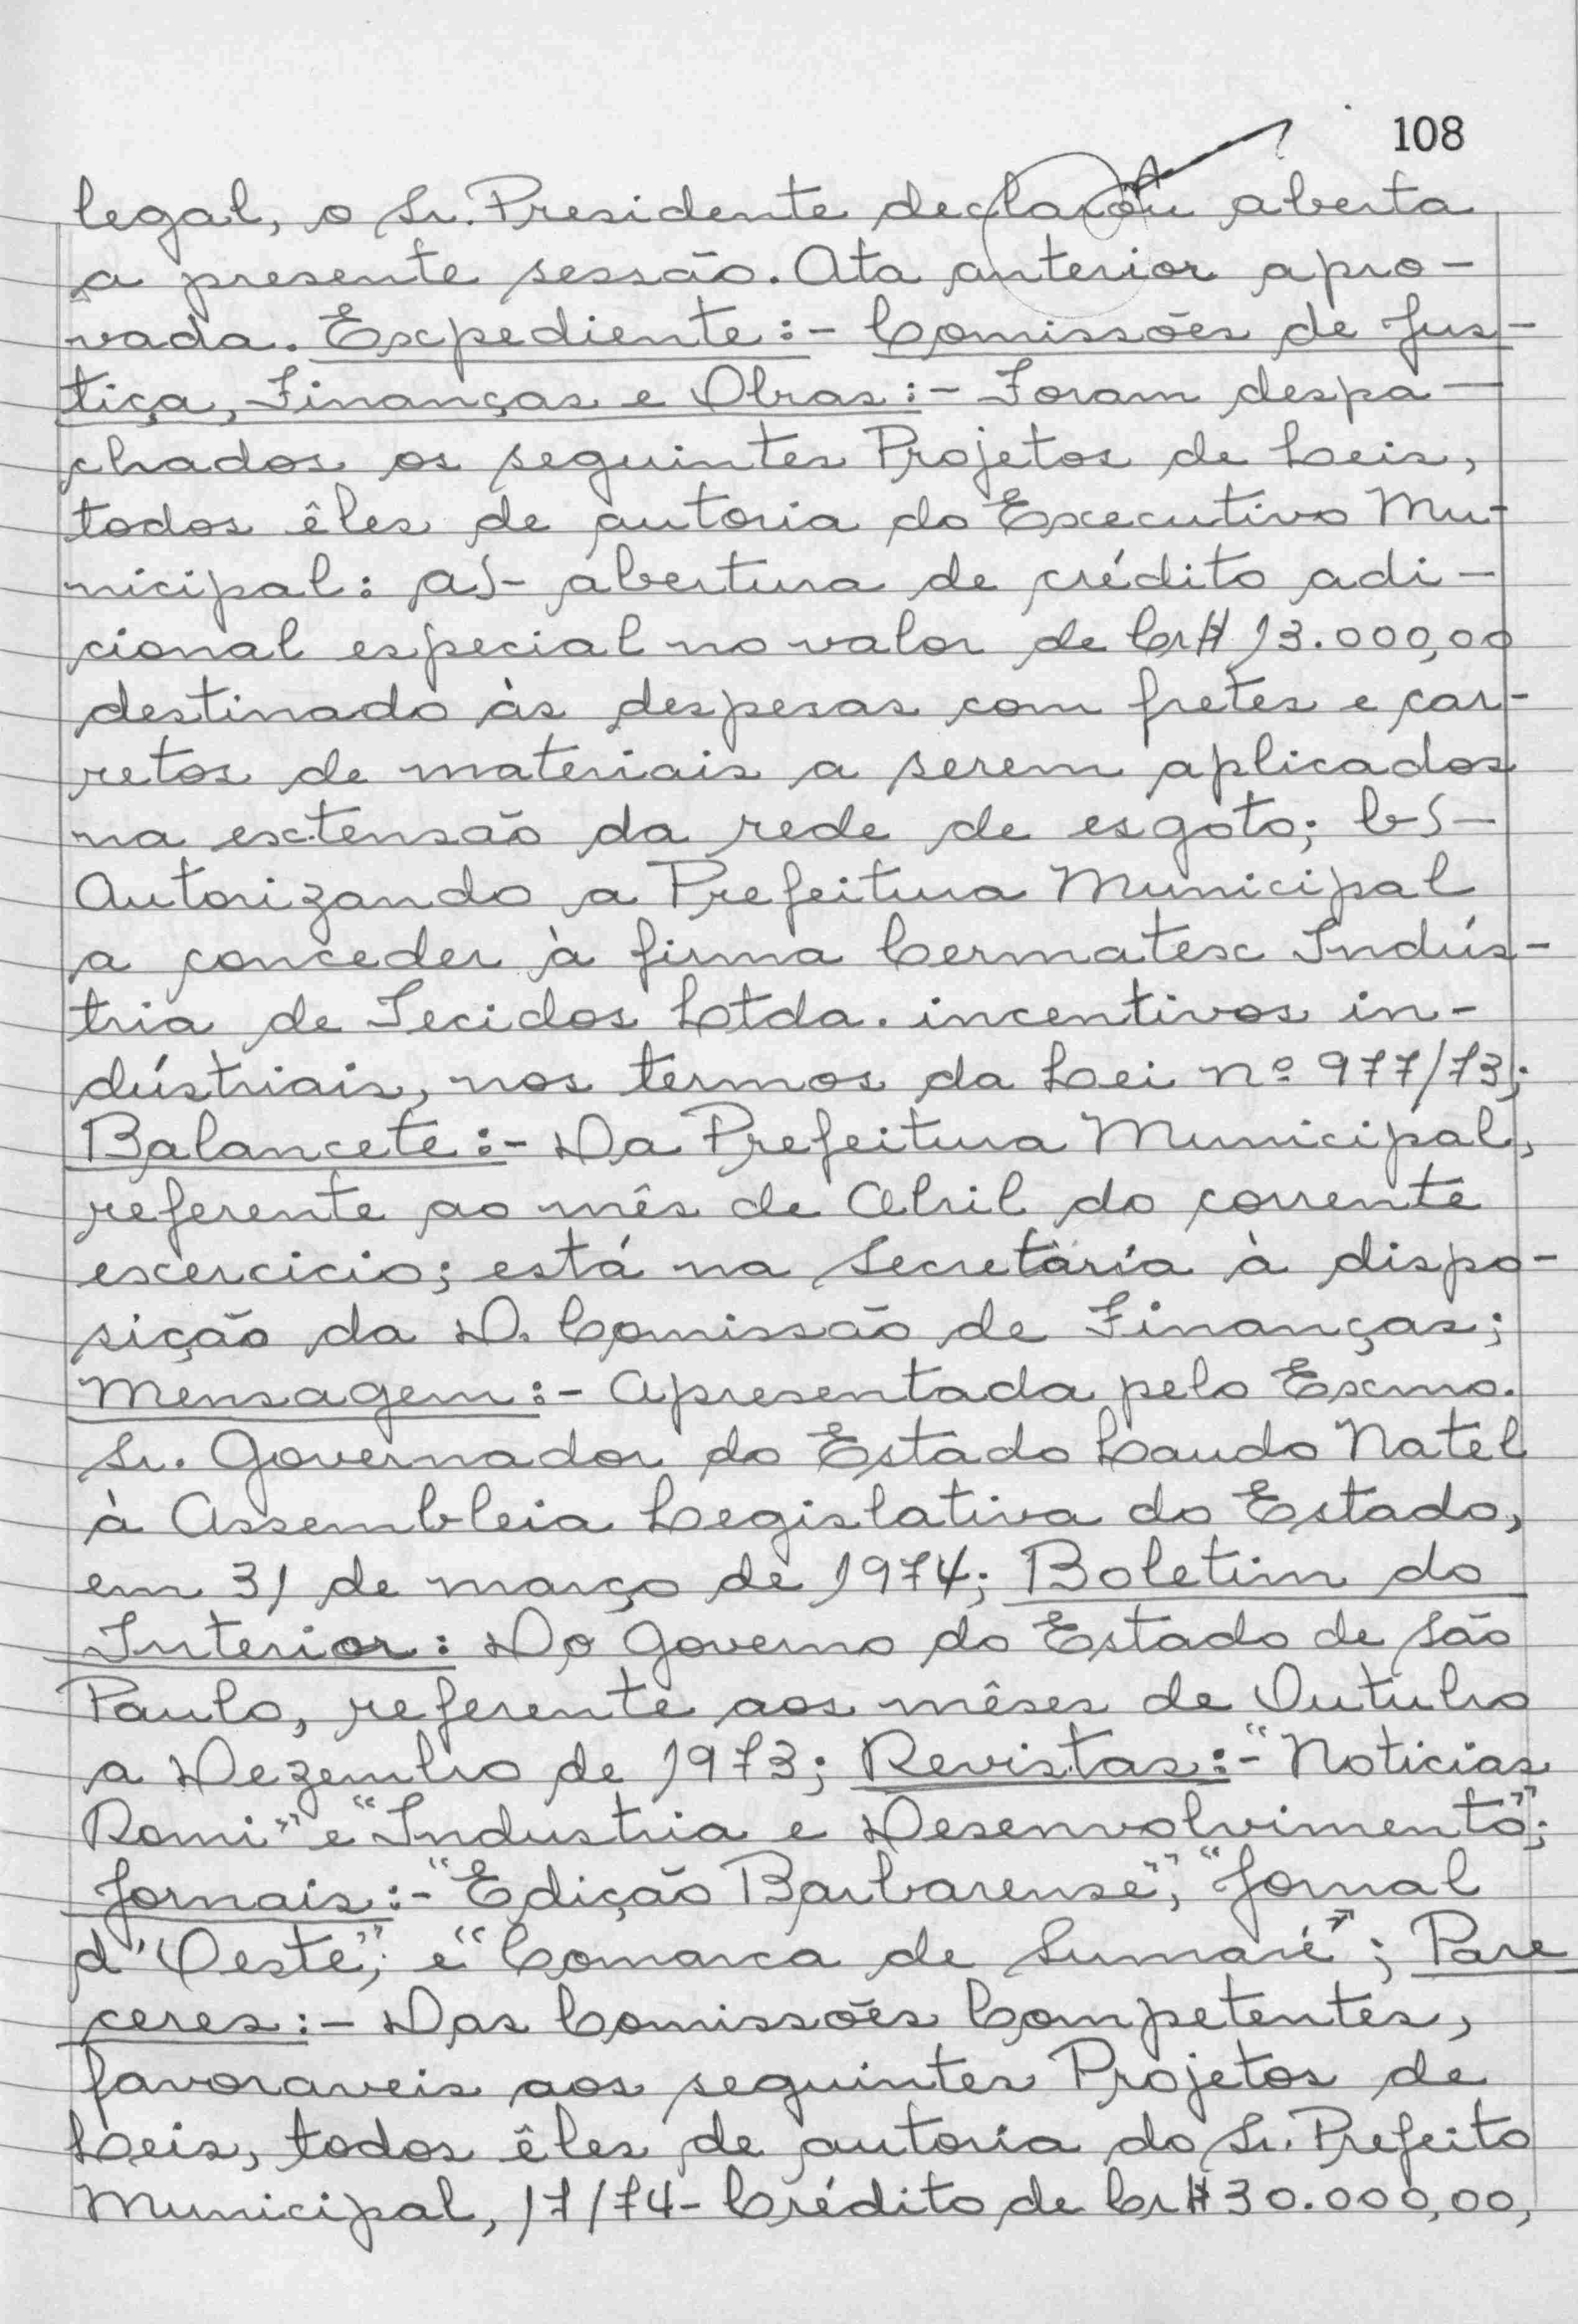 108
legal, o Sr. Presidente declarou aberta
a presente sessão. Ata anterior apro-
vada. Expediente:- Comissões de Jus-
tiça, Finanças e Obras:- Foram despa-
chados os seguintes Projetos de Leis,
todos êles de autoria do Executivo Mu-
nicipal: a)- abertura de crédito adi-
cional especial no valor de Cr$ 13.000,00
destinado às despesas com fretes e car-
retos de materiais a serem aplicados
na extensão da rede de esgoto; b)-
Autorizando a Prefeitura Municipal
a conceder à firma Cermatex Indús-
tria de Tecidos Ltda. incentivos in-
dústriais, nos termos da Lei nº 977/73;
Balancete:- Da Prefeitura Municipal,
referente ao mês de Abril do corrente
excercicio; está na Secretária à dispo-
sição da D. Comissão de Finanças;
Mensagem:- Apresentada pelo Exmo.
Sr. Governador do Estado Laudo Natel
à Assembleia Legislativa do Estado,
em 31 de março de 1974; Boletim do
Interior: Do Governo do Estado de São
Paulo, referente aos mêses de Outubro
a Dezembro de 1973; Revistas:- "Noticias
Romi" e "Industria e Desenvolvimento";
Jornais:- "Edição Barbarense", "Jornal
d'Oeste", e "Comarca de Sumaré"; Pare
ceres:- Das Comissões Competentes,
favoraveis aos seguintes Projetos de
Leis, todos êles de autoria do Sr. Prefeito
Municipal, 17/74- Crédito de Cr$ 30.000,00,